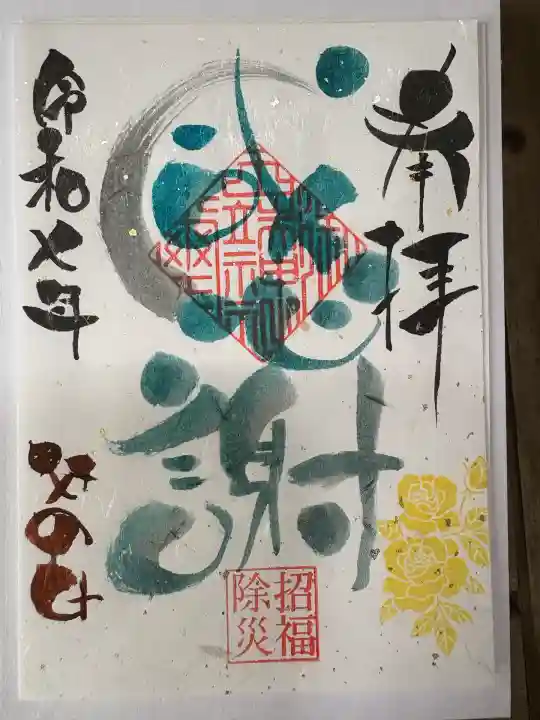 奉拝
感謝
招福
除災
令和七年
父の日